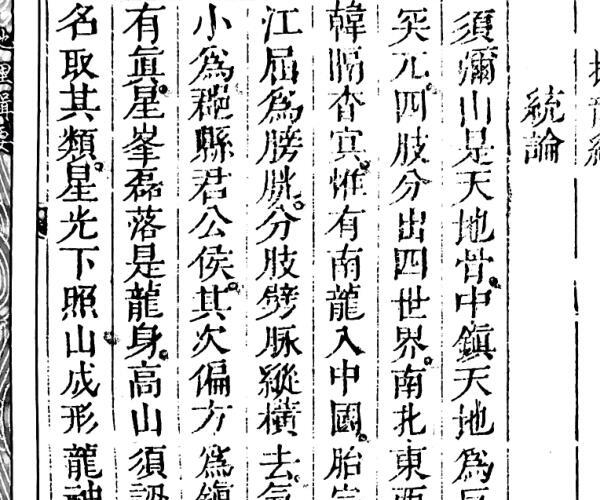 統論
須彌山是天地骨。中鎮天地為
突兀。四肢分出四世界。南北東西
韓隔杳冥。惟有南龍入中國。胎宗
江屈為膀胱。分肢劈脉縱橫去。氣
小為郡縣君公侯。其次偏方為鎮
有真。星峯磊落是龍身。高山須認
名取其類。星光下照山成形龍神